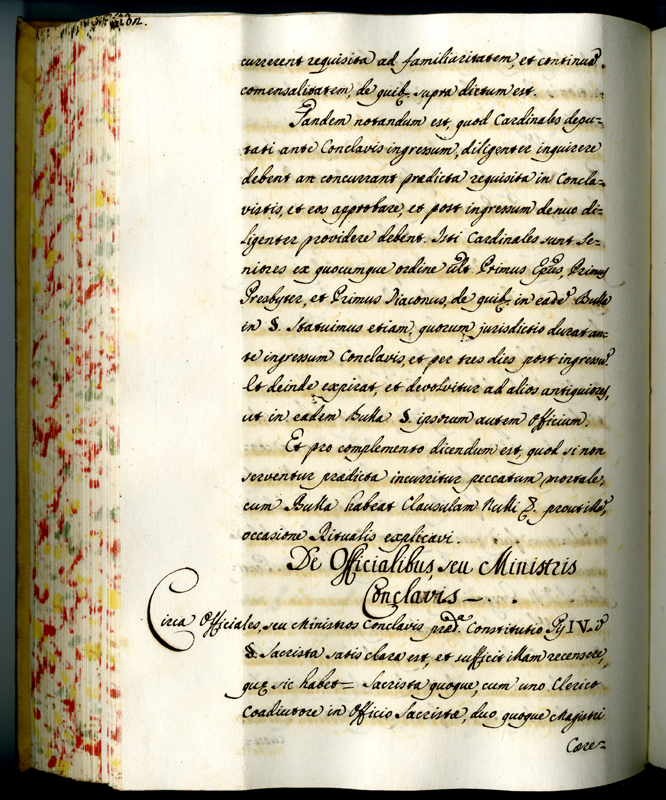 currerent requisita ad familiaritatem, et continuā
comensalitatem, de quib9 supra dictum est.
Tandem notandum est, quod Cardinales depu=
tati ante Conclavis ingressum, diligenter inquirere
debent an concurrant prædicta requisita in Concla=
vistis, et eos approbare, et post ingressum denuo di=
ligenter providere debent. Isti Cardinales sunt Se=
niores ex quocumque ordine Primus Epūs, Primus
Presbyter, et Primus Diaconus, de quib9 in eadē Bulla
in §. Statuimus etiam, quorum jurisdictio durat an=
te ingressum Conclavis, et per tres dies post ingressū.
Et deinde expirat, et devolvitur ad alios antiquiores,
ut in eadem Bulla §. ipsorum autem Officium.
Et pro complemento dicendum est, quod si non
serventur prædicta incurritur peccatum mortale,
cum Bulla habeat Clausulam Nulli
occasione Ritualis explicavi.
De Officialibus, seu Ministris
Conclavis – . .
Circa Officiales, seu Ministros Conclavis præda Constitutio Pij IV.
§. Sacrista satis clara est, et sufficit illam recensere,
quæ sic habet = Sacrista quoque, cum uno Clerico
Coadiutore in Officio Sacristæ, duo quoque Magistri
Cære=